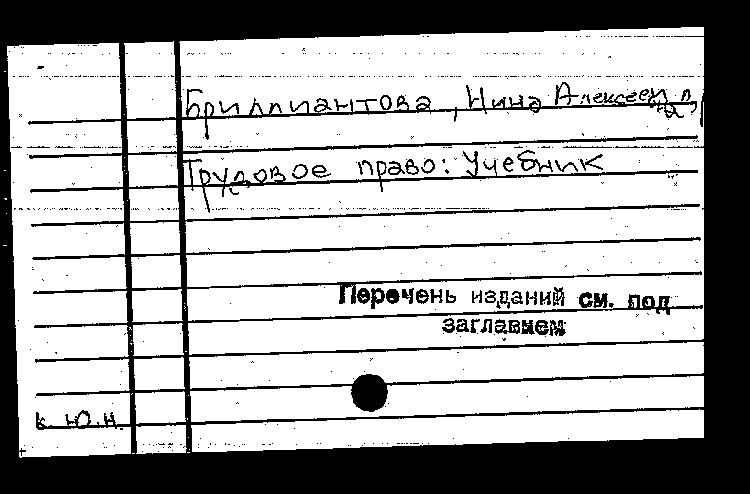 Бриллиантова, Нина Алексеевна,
Трудовое право: Учебник
Перечень изданий см. под
заглавием
к.ю.н.